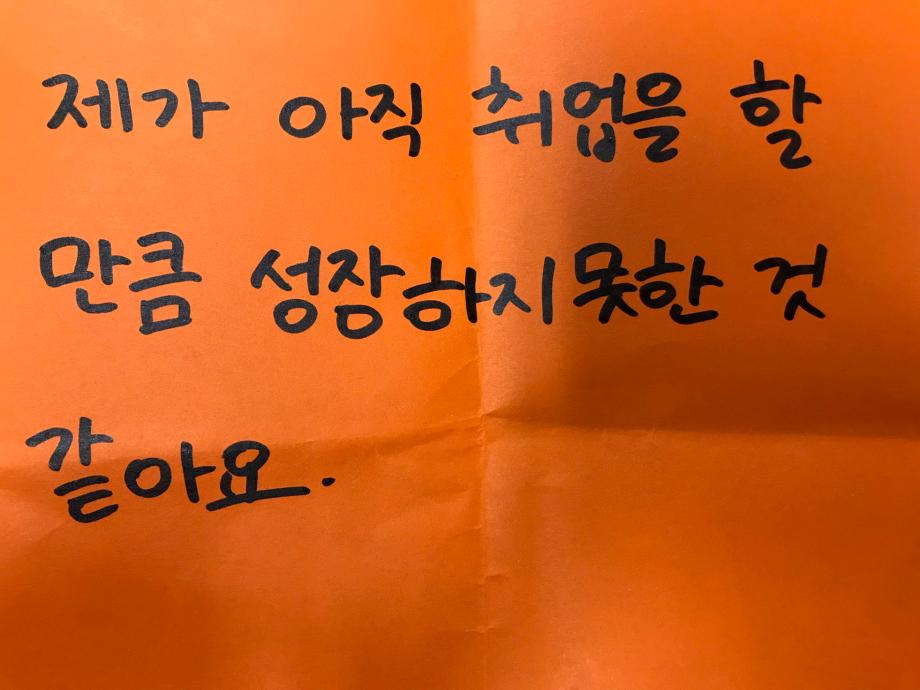 제가 아직 취업을 할
만큼 성장하지못한 것
같아요.